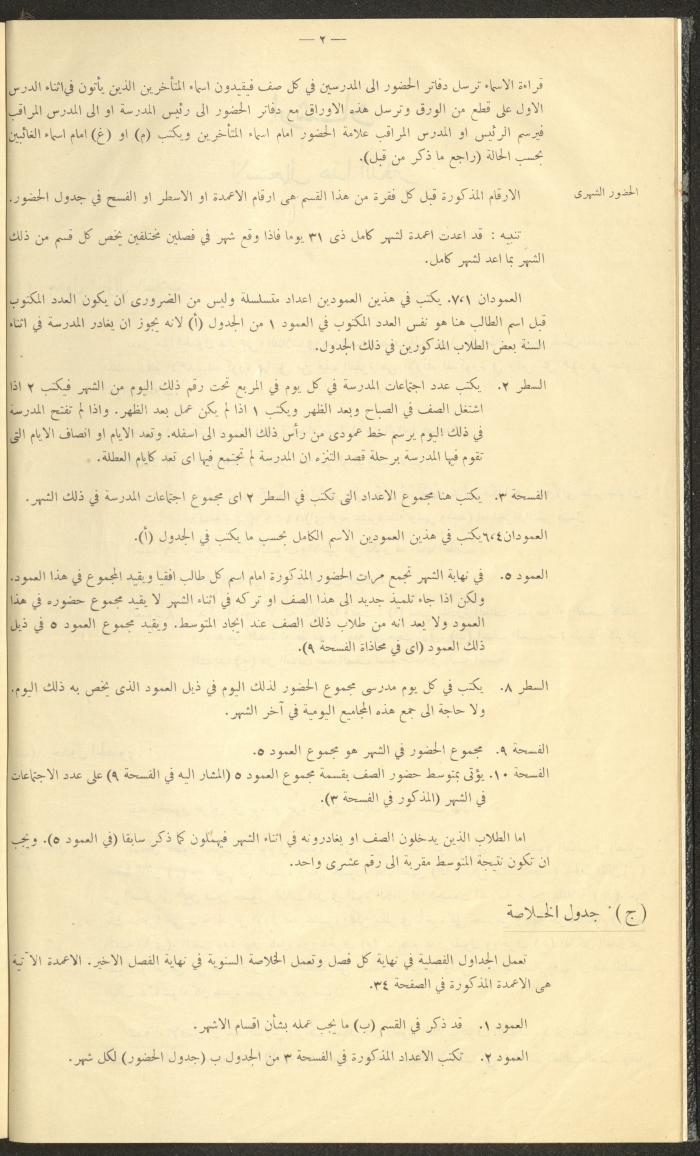 — ٢ —
قراءة الاسماء ترسل دفاتر الحضور الى المدرسين في كل صف فيقيدون اسماء المتأخرين الذين يأتون في اثناء الدرس
الاول على قطع من الورق وترسل هذه الاوراق مع دفاتر الحضور الى رئيس المدرسة او الى المدرس المراقب
فيرسم الرئيس او المدرس المراقب علامة الحضور امام اسماء المتأخرين ويكتب (م) او (غ) امام اسماء الغائبين
بحسب الحالة (راجع ما ذكر من قبل).
الحضور الشهرى
الارقام المذكورة قبل كل فقرة من هذا القسم هى ارقام الاعمدة او الاسطر او الفسح في جدول الحضور.
تنبيه : قد اعدت اعمدة لشهر كامل ذى ٣١ يوما فاذا وقع شهر في فصلين مختلفين يخص كل قسم من ذلك
الشهر بما اعد لشهر كامل.
العمودان ٧،١. يكتب في هذين العمودين اعداد متسلسلة وليس من الضرورى ان يكون العدد المكتوب
قبل اسم الطالب هنا هو نفس العدد المكتوب في العمود ١ من الجدول (أ) لانه يجوز ان يغادر المدرسة في اثناء
السنة بعض الطلاب المذكورين في ذلك الجدول.
السطر ٢. يكتب عدد اجتماعات المدرسة في كل يوم في المربع تحت رقم ذلك اليوم من الشهر فيكتب ٢ اذا
اشتغل الصف في الصباح وبعد الظهر ويكتب ١ اذا لم يكن عمل بعد الظهر. واذا لم تفتح المدرسة
في ذلك اليوم يرسم خط عمودى من رأس ذلك العمود الى اسفله. وتعد الايام او انصاف الايام التى
تقوم فيها المدرسة برحلة قصد التنزه ان المدرسة لم تجتمع فيها اى تعد كايام العطلة.
الفسحة ٣. يكتب هنا مجموع الاعداد التى تكتب في السطر ٢ اى مجموع اجتماعات المدرسة في ذلك الشهر.
العمودان٦،٤يكتب في هذين العمودين الاسم الكامل بحسب ما يكتب في الجدول (أ).
العمود ٥. في نهاية الشهر تجمع مرات الحضور المذكورة امام اسم كل طالب افقيا ويقيد المجموع في هذا العمود.
ولكن اذا جاء تلميذ جديد الى هذا الصف او تركه في اثناء الشهر لا يقيد مجموع حضوره في هذا
العمود ولا يعد انه من طلاب ذلك الصف عند ايجاد المتوسط. ويقيد مجموع العمود ٥ في ذيل
ذلك العمود (اى في محاذاة الفسحة ٩).
السطر ٨. يكتب في كل يوم مدرسى مجموع الحضور لذلك اليوم في ذيل العمود الذى يخص به ذلك اليوم.
ولا حاجة الى جمع هذه المجاميع اليومية في آخر الشهر.
الفسحة ٩. مجموع الحضور في الشهر هو مجموع العمود ٥.
الفسحة ١٠. يؤتى بمتوسط حضور الصف بقسمة مجموع العمود ٥ (المشار اليه في الفسحة ٩) على عدد الاجتماعات
في الشهر (المذكور في الفسحة ٣).
اما الطلاب الذين يدخلون الصف او يغادرونه في اثناء الشهر فيهملون كما ذكر سابقا (في العمود ٥). ويجب
ان تكون نتيجة المتوسط مقربة الى رقم عشرى واحد.
(ج) ٠ جدول الخـلاصة
تعمل الجداول الفصلية في نهاية كل فصل وتعمل الخلاصة السنوية في نهاية الفصل الاخير. الاعمدة الآتية
هى الاعمدة المذكورة في الصفحة ٣٤.
العمود ١. قد ذكر في القسم (ب) ما يجب عمله بشأن اقسام الاشهر.
العمود ٢. تكتب الاعداد المذكورة في الفسحة ٣ من الجدول ب (جدول الحضور) لكل شهر.